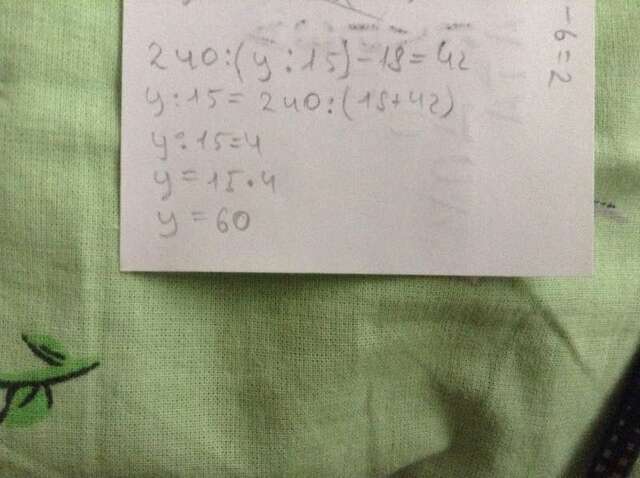 240:(y:15)-18=42
y:15=240:(18+42)
y:15=4
y=15•4
y=60
-6=2